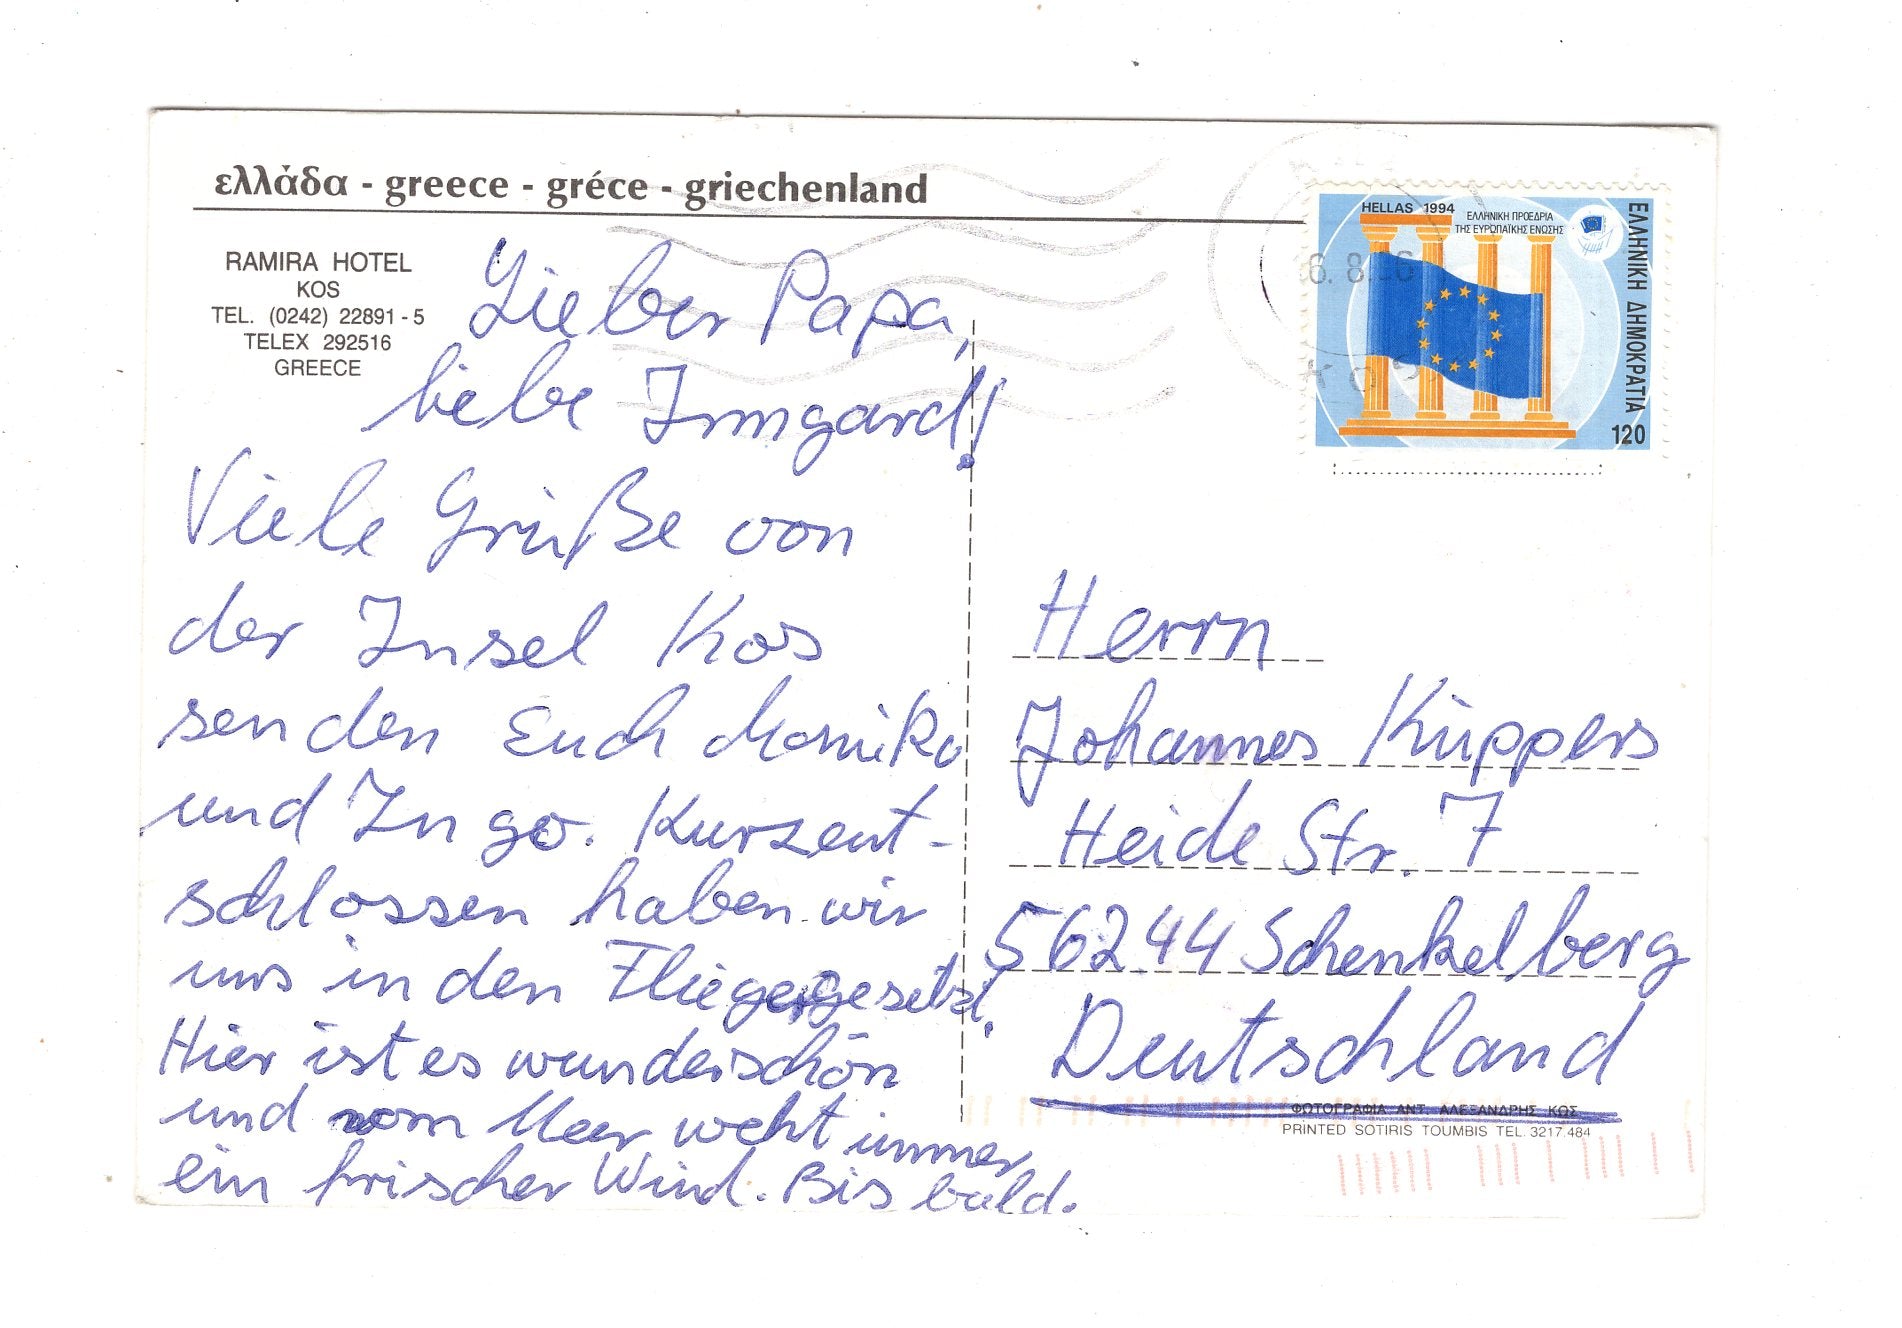 ελλάδα - greece - gréce - griechenland
RAMIRA HOTEL
KOS
TEL. (0242) 22891 - 5
TELEX 292516
GREECE
Lieber Papa,
liebe Irmgard!
Viele Grüße von
der Insel Kos
senden Euch Monika
und Ingo. Kurzent-
schlossen haben wir
uns in den Flieger gesetzt.
Hier ist es wunderschön
und vom Meer weht immer
ein frischer Wind. Bis bald.
HELLAS 1994
ΕΛΛΗΝΙΚΗ ΠΡΟΕΔΡΙΑ
ΤΗΣ ΕΥΡΩΠΑΪΚΗΣ ΕΝΩΣΗΣ
ΕΛΛΗΝΙΚΗ ΔΗΜΟΚΡΑΤΙΑ
120
Herrn
Johannes Küppers
Heide Str. 7
56244 Schenkelberg
Deutschland
ΦΩΤΟΓΡΑΦΙΑ ΑΝΤ. ΑΛΕΞΑΝΔΡΗΣ ΚΩΣ
PRINTED SOTIRIS TOUMBIS TEL. 3217.484